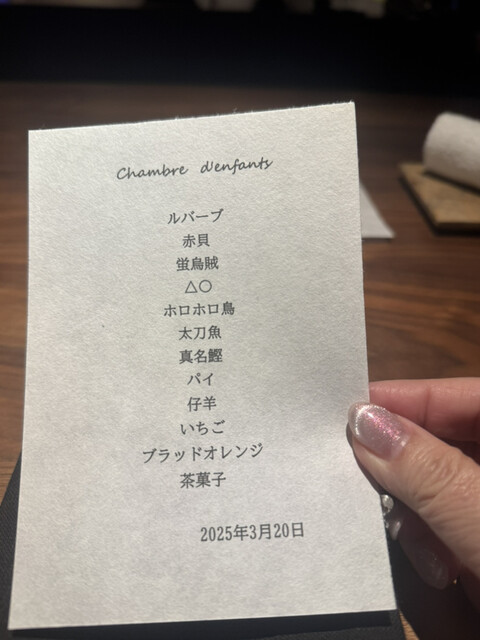 Chambre d'enfants
ルバーブ
赤貝
蛍烏賊
△○
ホロホロ鳥
太刀魚
真名鰹
パイ
仔羊
いちご
ブラッドオレンジ
茶菓子
2025年3月20日